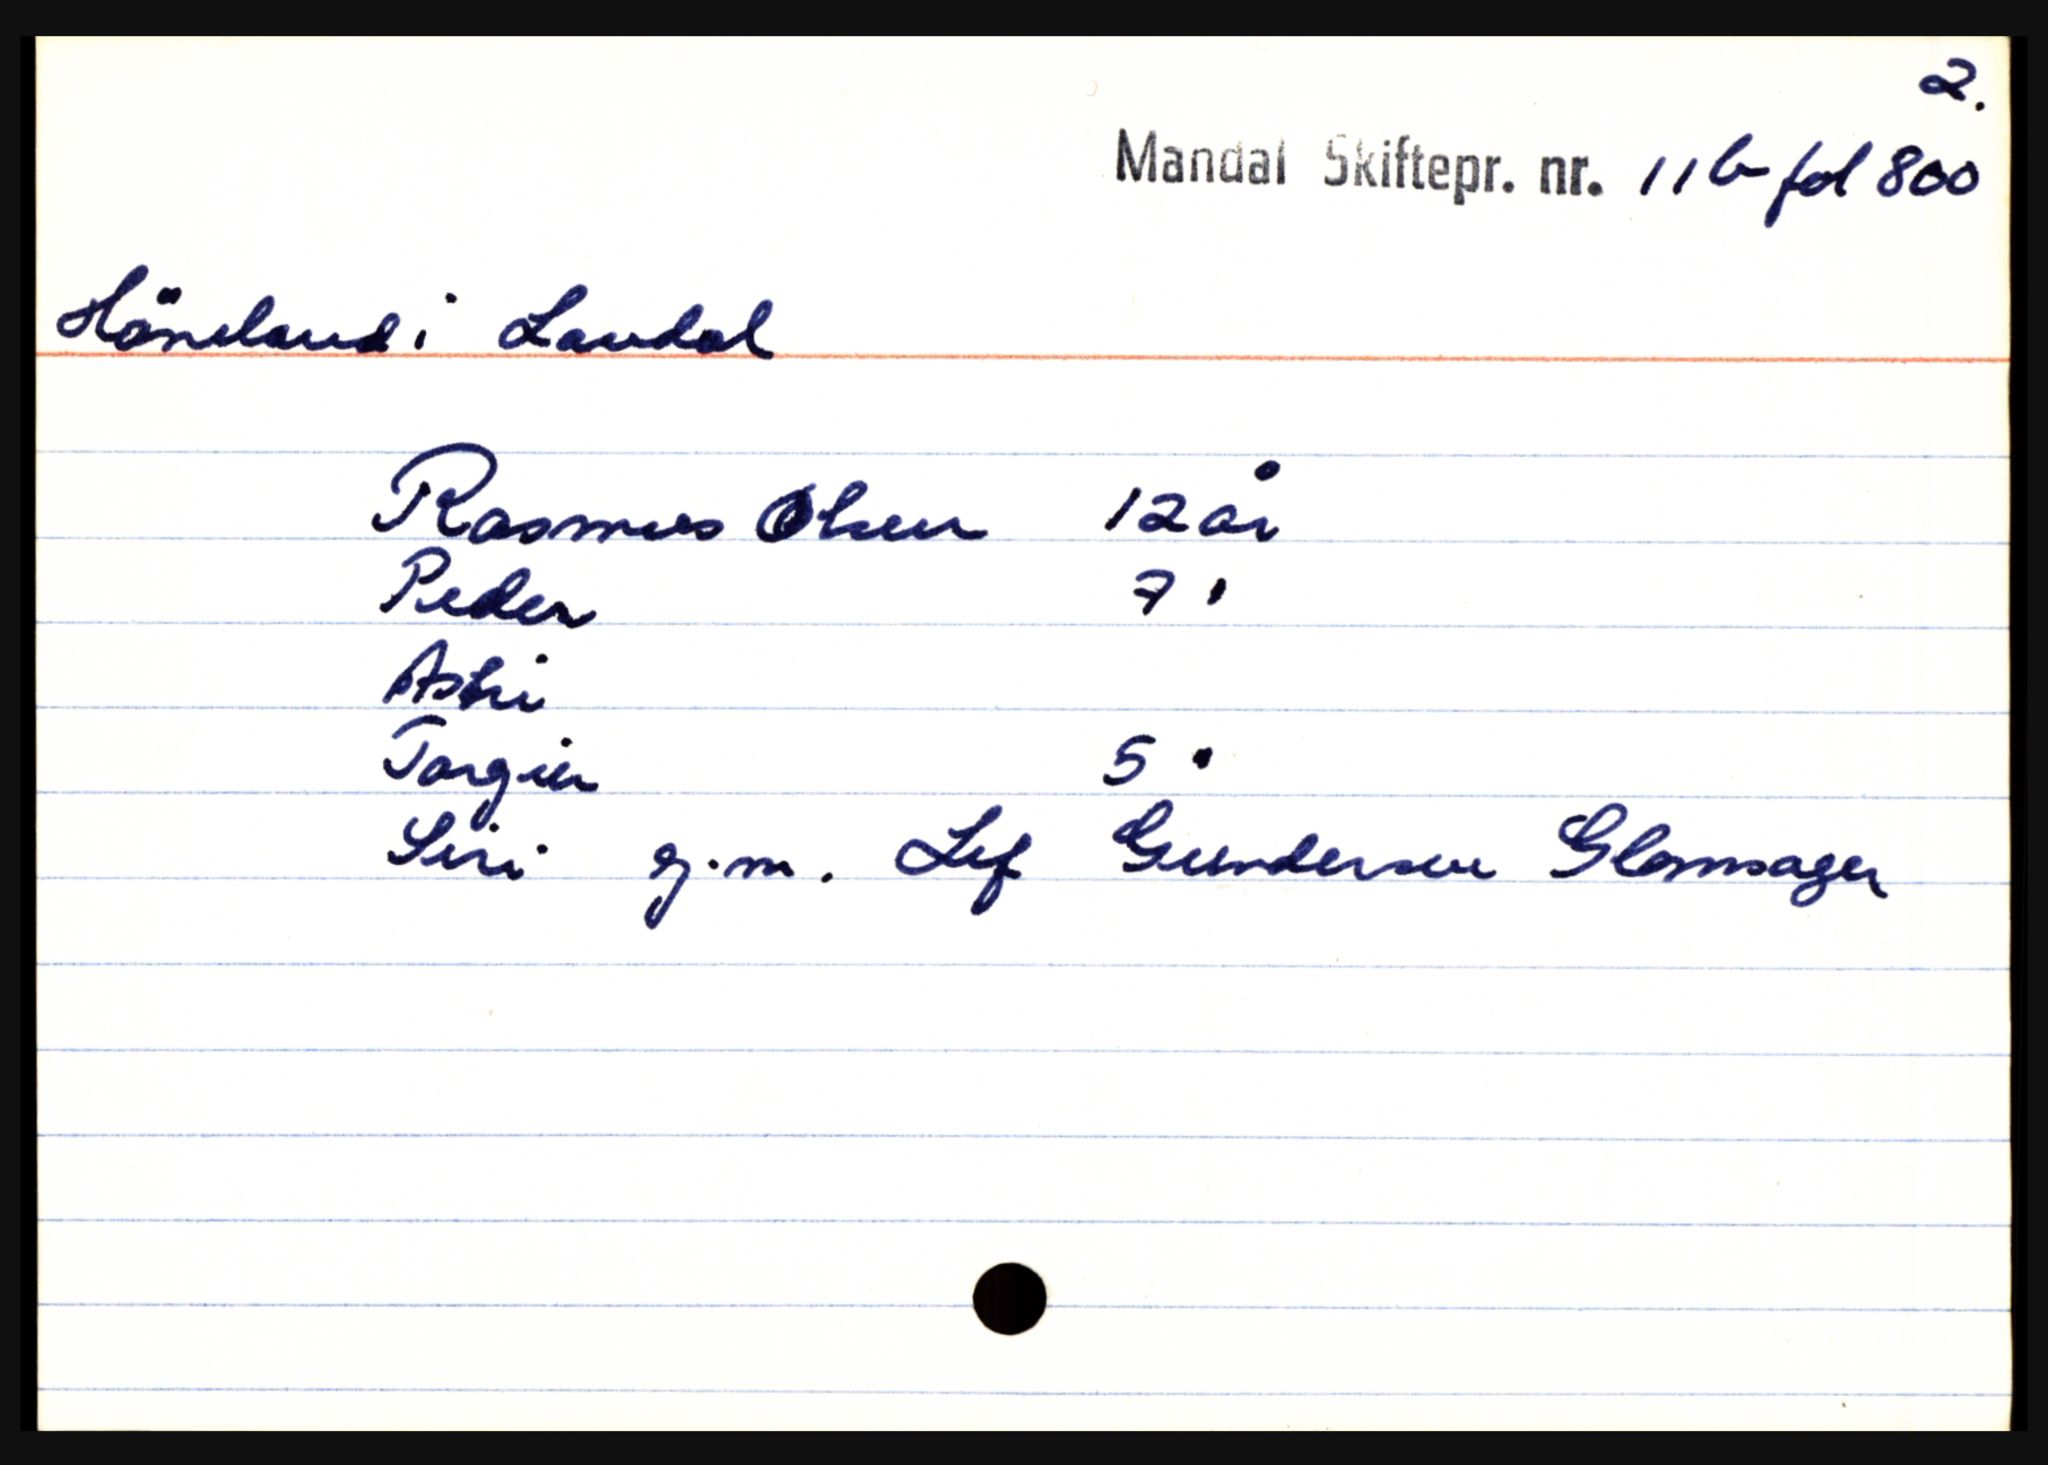 2.
Mandal Skiftepr. nr. 11b fol 800
Höneland i Laudal
Rasmus Olsen 12 år
Peder 7 "
Astri
Torgier 5 "
Siri g.m. Lef Gundersen Glomsager